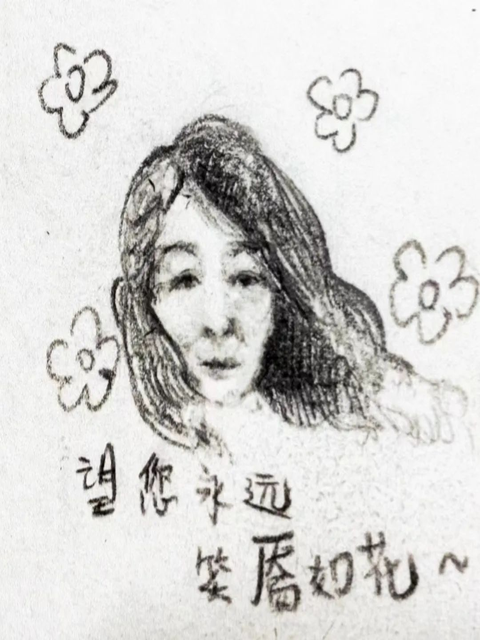 望您永远
笑靥如花~